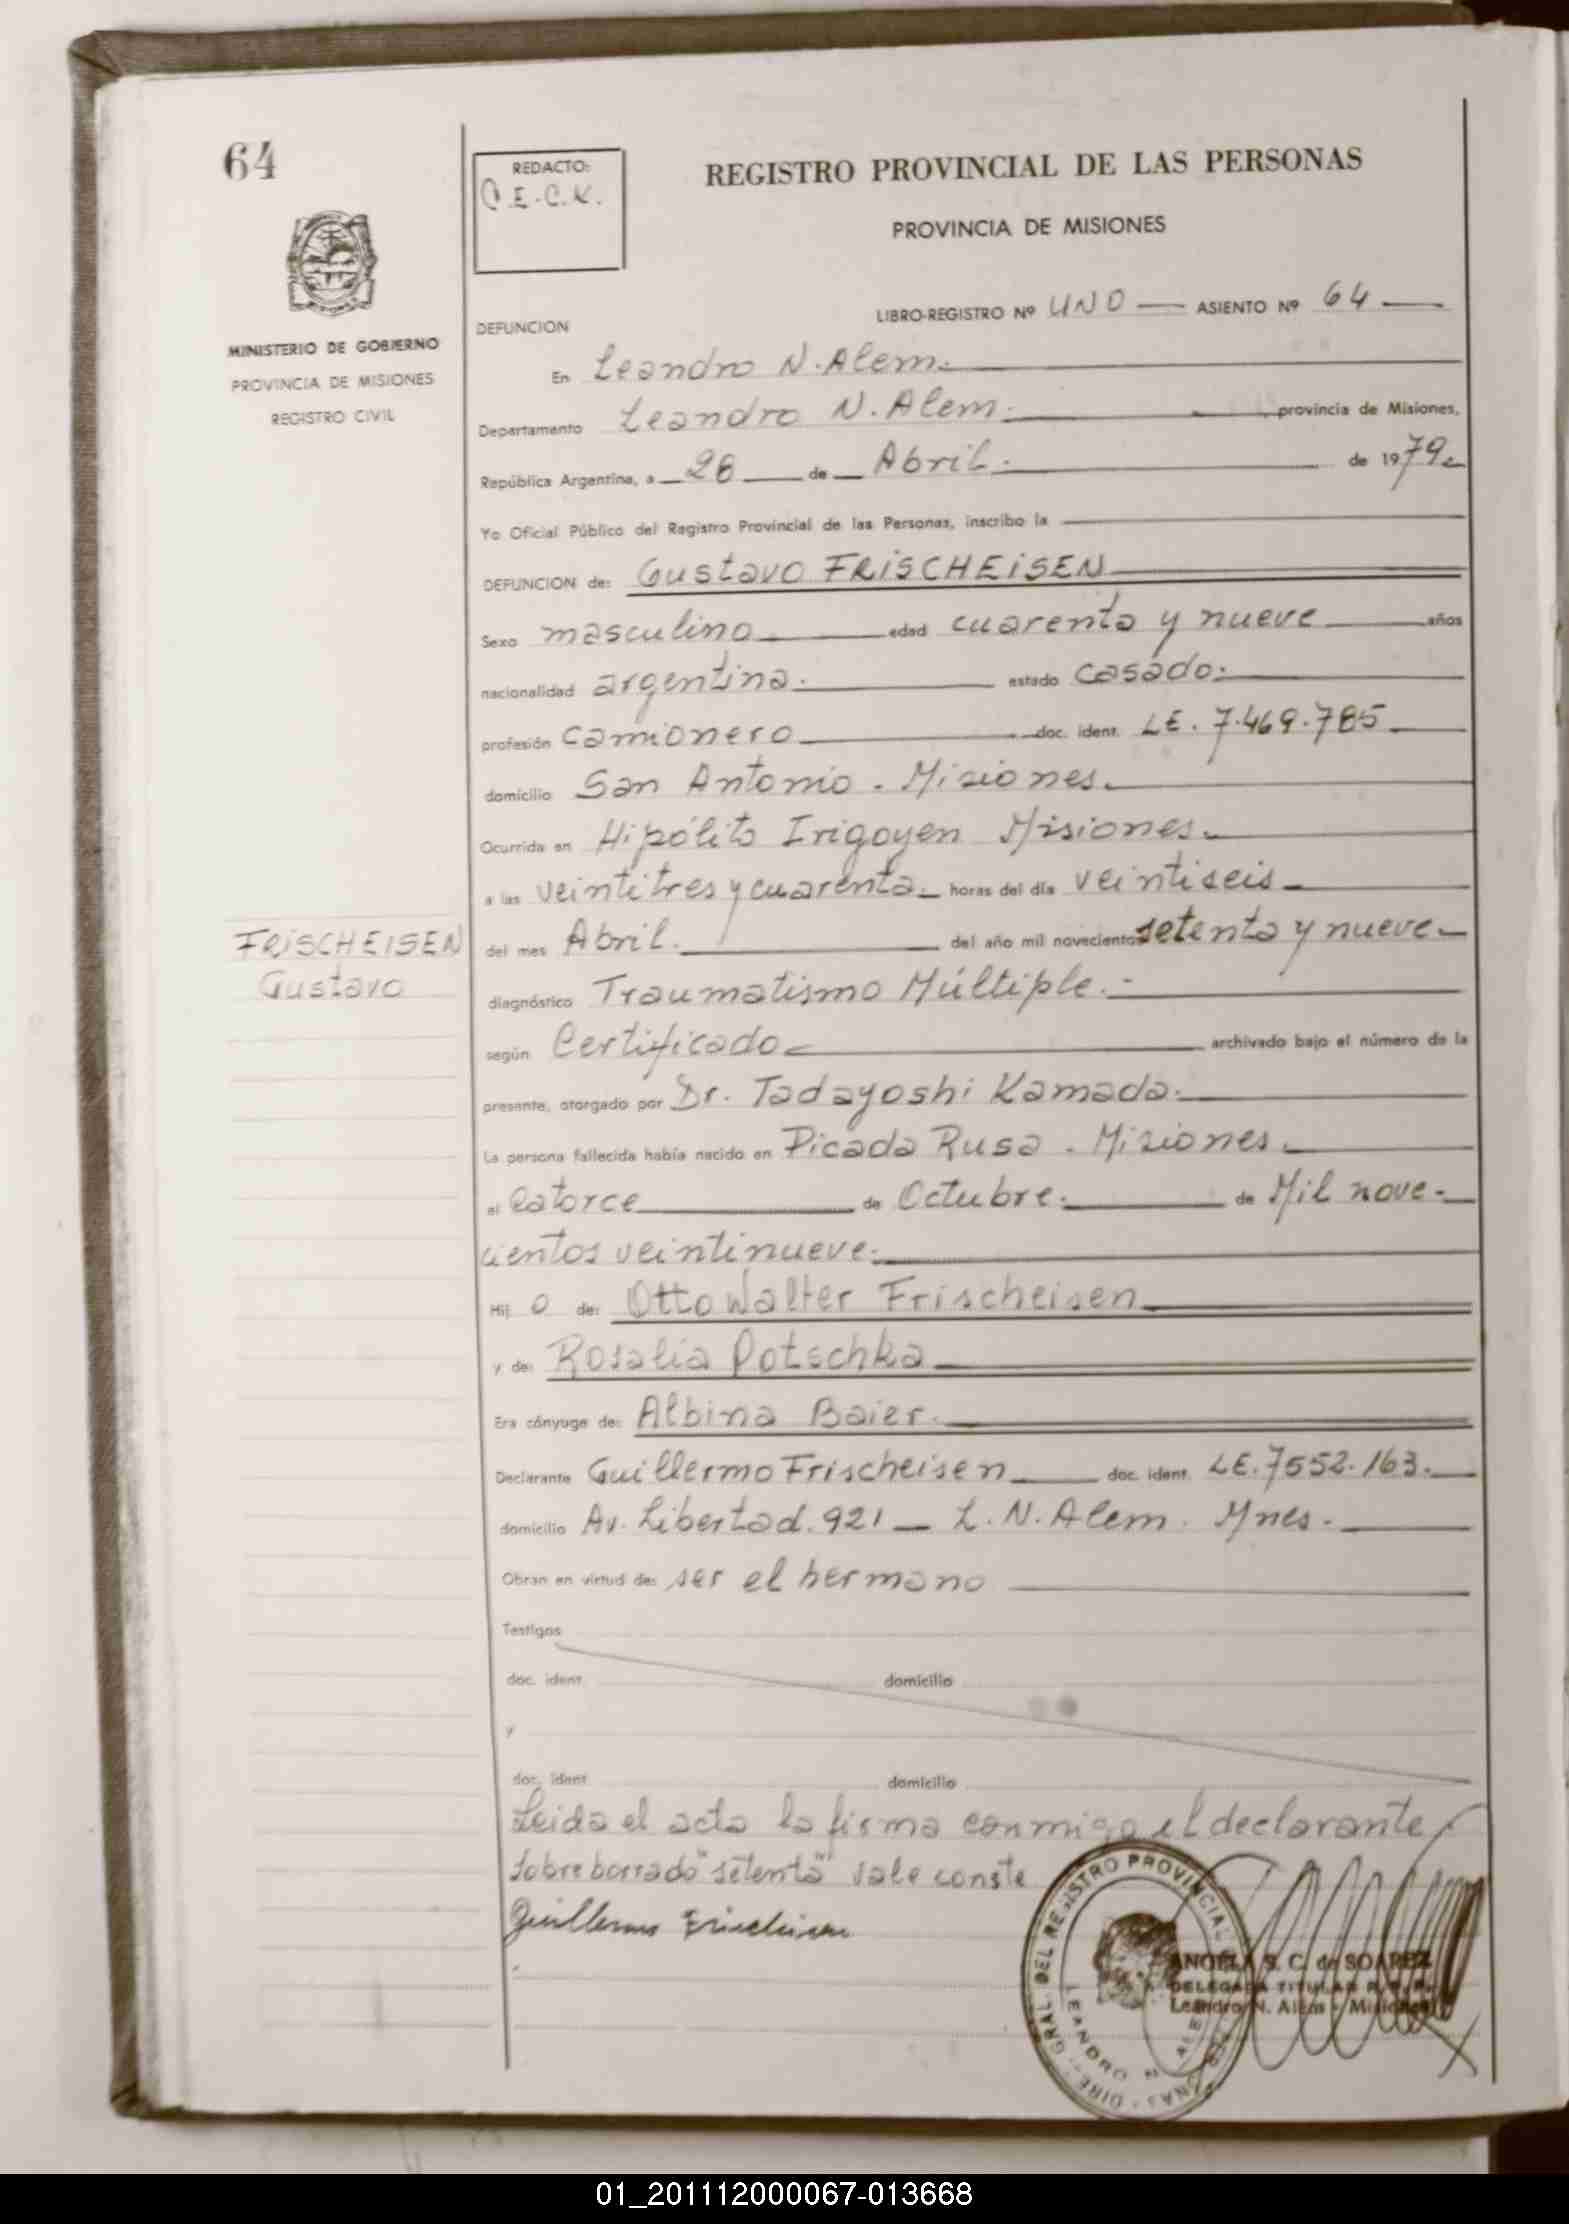 64
REDACTO:
C.E.C.K.
REGISTRO PROVINCIAL DE LAS PERSONAS
PROVINCIA DE MISIONES
MINISTERIO DE GOBIERNO
PROVINCIA DE MISIONES
REGISTRO CIVIL
LIBRO-REGISTRO Nº UNO — ASIENTO Nº 64 —
DEFUNCION
En Leandro N. Alem.
Departamento Leandro N. Alem. provincia de Misiones,
República Argentina, a 28 de Abril. de 1979.
Yo Oficial Público del Registro Provincial de las Personas, inscribo la
DEFUNCION de: Gustavo FRISCHEISEN
Sexo masculino edad cuarenta y nueve años
nacionalidad argentina. estado casado.
profesión camionero doc. ident. LE. 7.469.785
domicilio San Antonio - Misiones.
Ocurrida en Hipólito Irigoyen Misiones.
a las veintitres y cuarenta horas del día veintiseis
FRISCHEISEN
Gustavo
del mes Abril. del año mil novecientos setenta y nueve
diagnóstico Traumatismo Múltiple.
según Certificado archivado bajo el número de la
presente, otorgado por Dr. Tadayoshi Kamada.
La persona fallecida había nacido en Picada Rusa - Misiones.
el Catorce de Octubre. de Mil nove-
cientos veintinueve.
Hij o de: Otto Walter Frischeisen
y de: Rosalia Potschka
Era cónyuge de: Albina Baier.
Declarante Guillermo Frischeisen doc. ident. LE. 7552.163.
domicilio Av. Libertad. 921 — L. N. Alem. Mnes.
Obran en virtud de: ser el hermano
Testigos
doc. ident. domicilio
y
doc. ident. domicilio
Leida el acta la firma conmigo el declarante
sobre borrado "setenta" vale conste
Guillermo Frischeisen
ANGELA S. C. de SOAREZ
DELEGADA TITULAR R.P.P.
Leandro N. Alem - Misiones
GRAL. DEL REGISTRO PROVINCIAL
LEANDRO N. ALEM
01_201112000067-013668